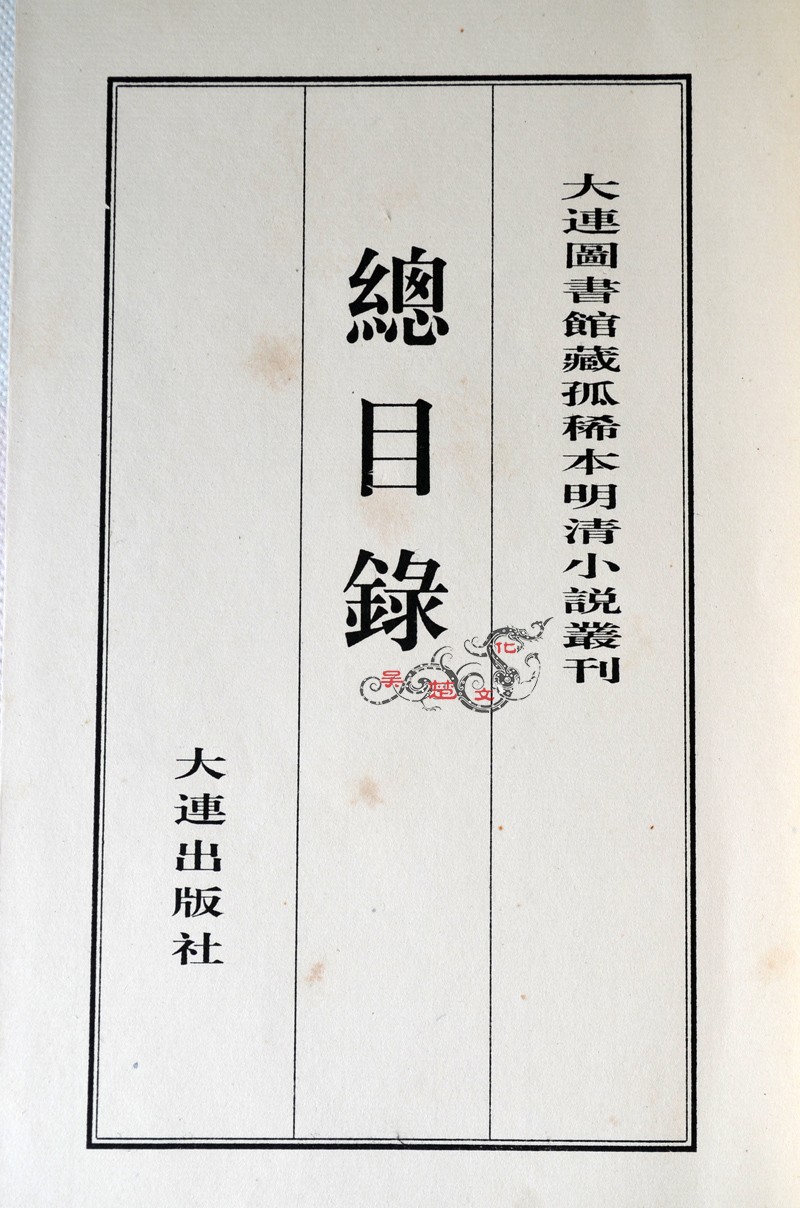 大連圖書館藏孤稀本明清小説叢刊
總目錄
大連出版社
吴楚文化